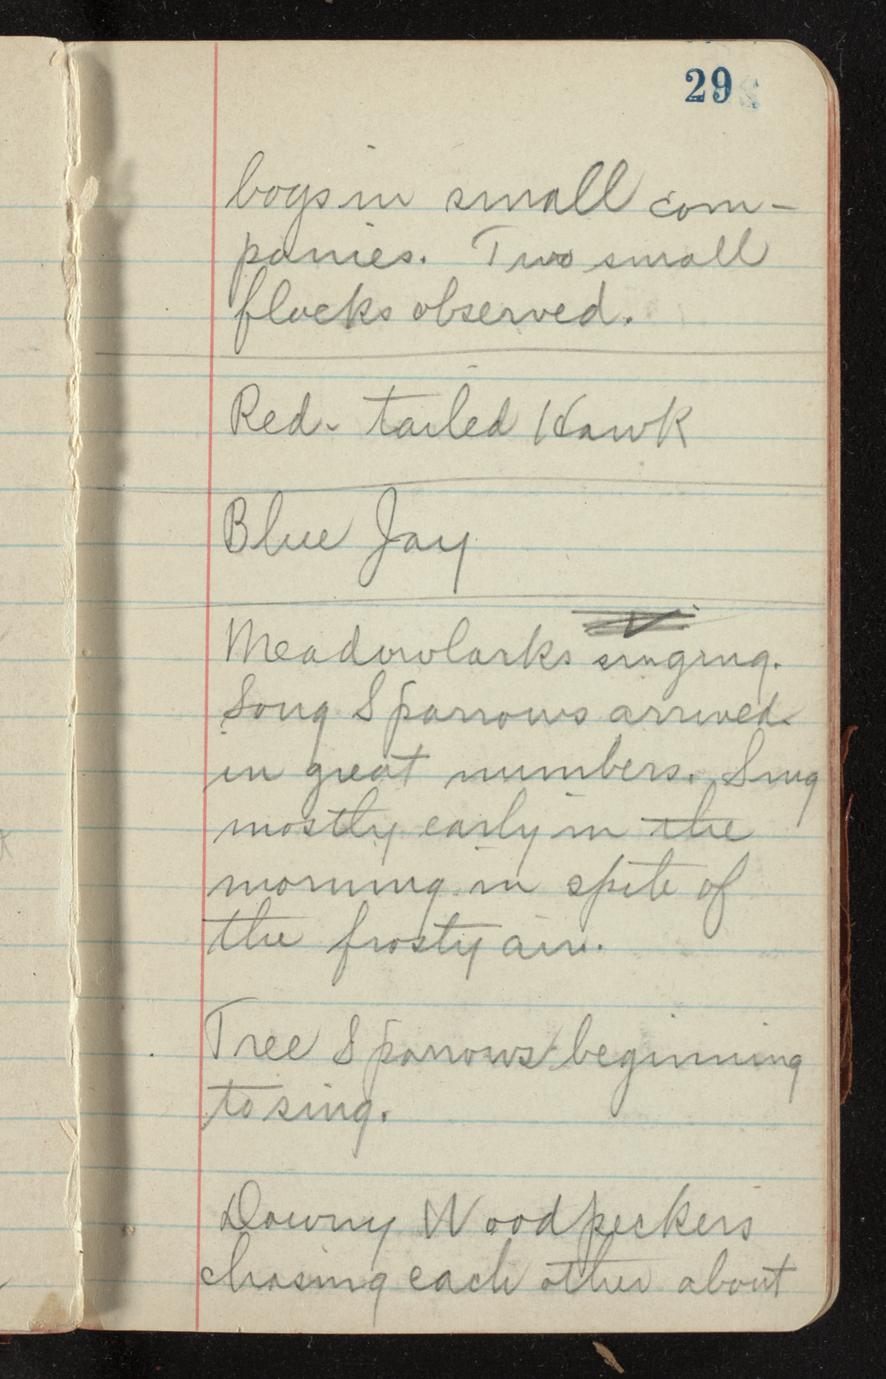 29
bogs in small com-
panies. Two small
flocks observed.
Red-tailed Hawk
Blue Jay
Meadowlarks singing.
Song Sparrows arrived
in great numbers. Sing
mostly early in the
morning in spite of
the frosty air.
Tree Sparrows beginning
to sing.
Downy Woodpeckers
chasing each other about